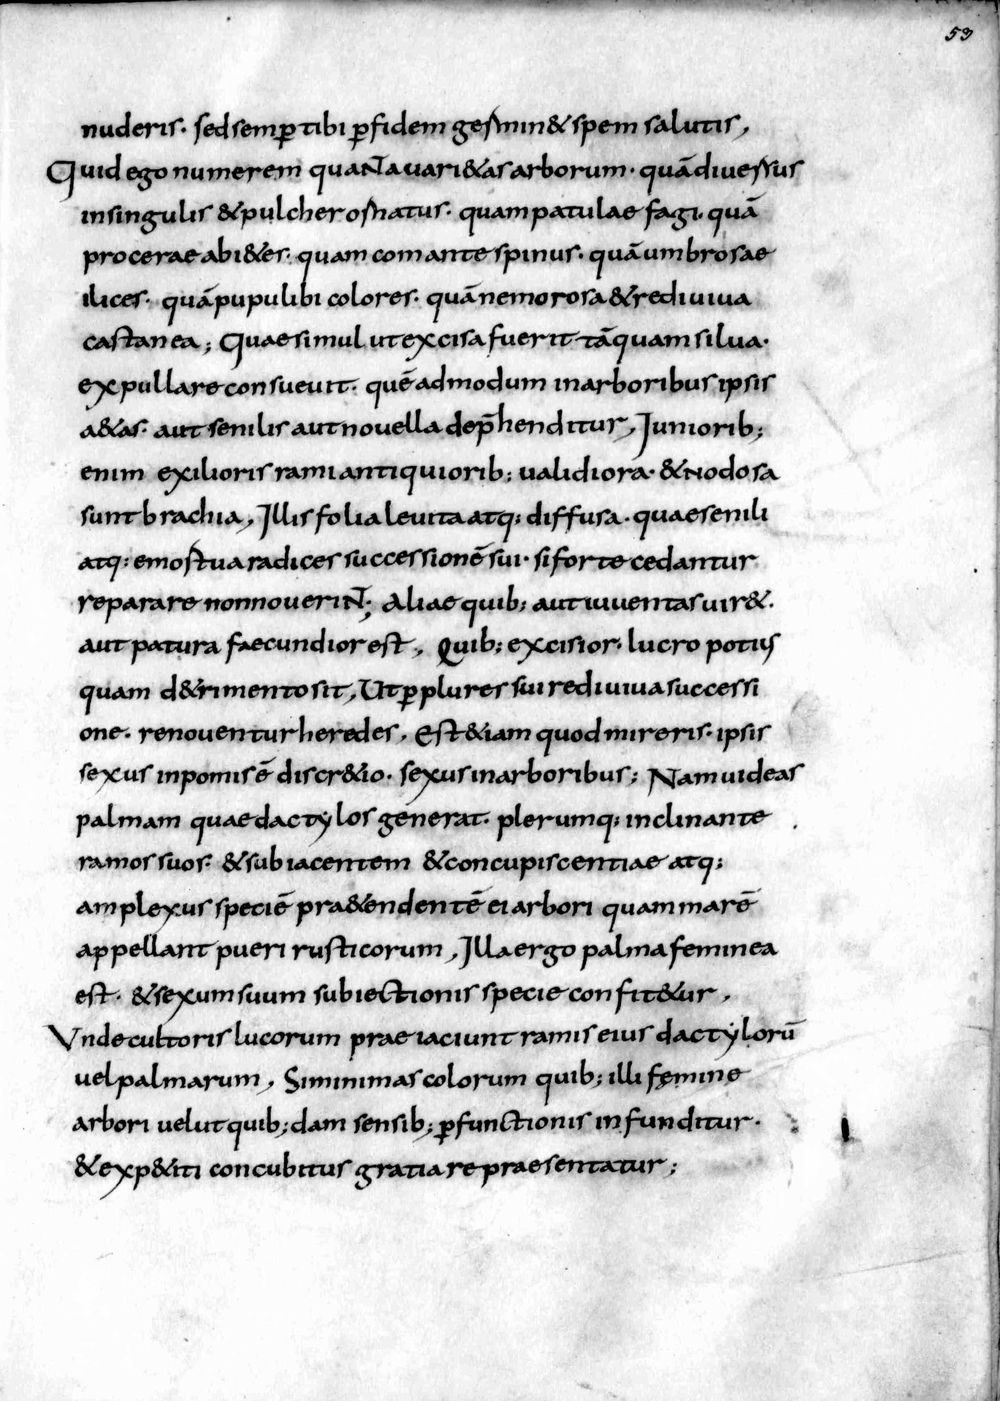 53
nuderis· sed semp̱ tibi p̱fidem germin& spem salutis,
Quid ego numerem quaNta uari&as arborum· quā diuersus
in singulis & pulcher ornatus· quam patulae fagi· quā
procerae abi&es· quam comante spinus· quā umbrosae
ilices· quā pupulibi colores· quā nemorosa & rediuiua
castanea; Quae simul ut excisa fuerit tāquam silua·
expullare consueuit· quēadmodum in arboribus ipsis
a&as· aut senilis aut nouella dep̄henditur, Iuniorib;
enim exilioris rami antiquiorib; ualidiora· & nodosa
sunt brachia, Illis folia leuita atq; diffusa· quae senili
atq; emostua radices successionē sui· si forte cedantur
reparare non noueriN̄t; Aliae quib; aut iuuentas uir&·
aut patura faecundior est, Quib; excisior· lucro potius
quam d&rimento sit, Ut p̱ plures sui rediuiua successi
one· renouentur heredes, Est &iam quod mireris· ipsis
sexus in pomis ē discr&io· sexus in arboribus; Nam uideas
palmam quae dactylos generat· plerumq; inclinante
ramos suos· & subiacentem & concupiscentiae atq;
amplexus speciē pra&endentē ei arbori quam marē
appellant pueri rusticorum, Illa ergo palma feminea
est· & sexum suum subiectionis specie confit&ur,
Vnde cultoris lucorum prae iaciunt ramis eius dactylorū
uel palmarum, Siminimas colorum quib; illi femine
arbori uelut quib;dam sensib; p̱functionis infunditur·
& exp&iti concubitus gratia repraesentatur;